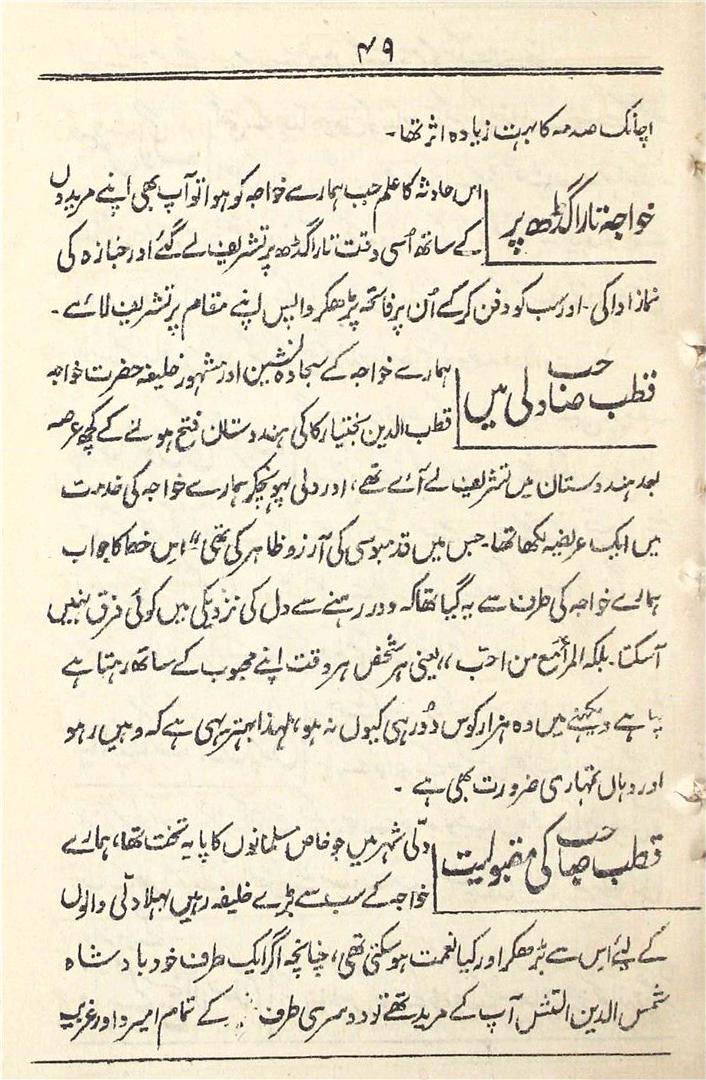 ۴۹
اچانک صدمہ کا بہت زیادہ اثر تھا۔
خواجہ تاراگڈھ پر
اس حادثہ کا علم جب ہمارے خواجہ کو ہوا تو آپ بھی اپنے مریدوں
کے ساتھ اُسی وقت تاراگڈھ پر تشریف لے گئے اور جنازہ کی
نماز ادا کی۔ اور سب کو دفن کرکے اُن پر فاتحہ پڑھکر واپس اپنے مقام پر تشریف لائے۔
قطب صاحب دلی میں
ہمارے خواجہ کے سجادہ نشین اور مشہور خلیفہ حضرت خواجہ
قطب الدین بختیار کاکی ہندوستان فتح ہونے کے کچھ عرصہ
بعد ہندوستان میں تشریف لے آئے تھے، اور دلی پہونچکر ہمارے خواجہ کی خدمت
میں ایک عریضہ لکھا تھا۔ جس میں قدمبوسی کی آرزو ظاہر کی تھی" اس خط کا جواب
ہمارے خواجہ کی طرف سے یہ گیا تھا کہ دور رہنے سے دل کی نزدیکی میں کوئی فرق نہیں
آسکتا۔ بلکہ المرأ مع من احبّ ،، یعنی ہر شخص ہر وقت اپنے محبوب کے ساتھ رہتا ہے
چاہے دیکھنے میں وہ ہزار کوس دُور ہی کیوں نہ ہو، لہٰذا بہتر یہی ہے کہ وہیں رہو
اور وہاں تمہاری ضرورت بھی ہے ۔
قطب صاحب کی مقبولیت
دلّی شہر میں جو خاص مسلمانوں کا پایہ تخت تھا، ہمارے
خواجہ کے سب سے بڑے خلیفہ رہیں بھلا دلّی والوں
کے لئے اس سے بڑھکر اور کیا نعمت ہوسکتی تھی، چنانچہ اگر ایک طرف خود بادشاہ
شمس الدین التمش آپ کے مرید تھے تو دوسری طرف کے تمام امیر و اور غریب